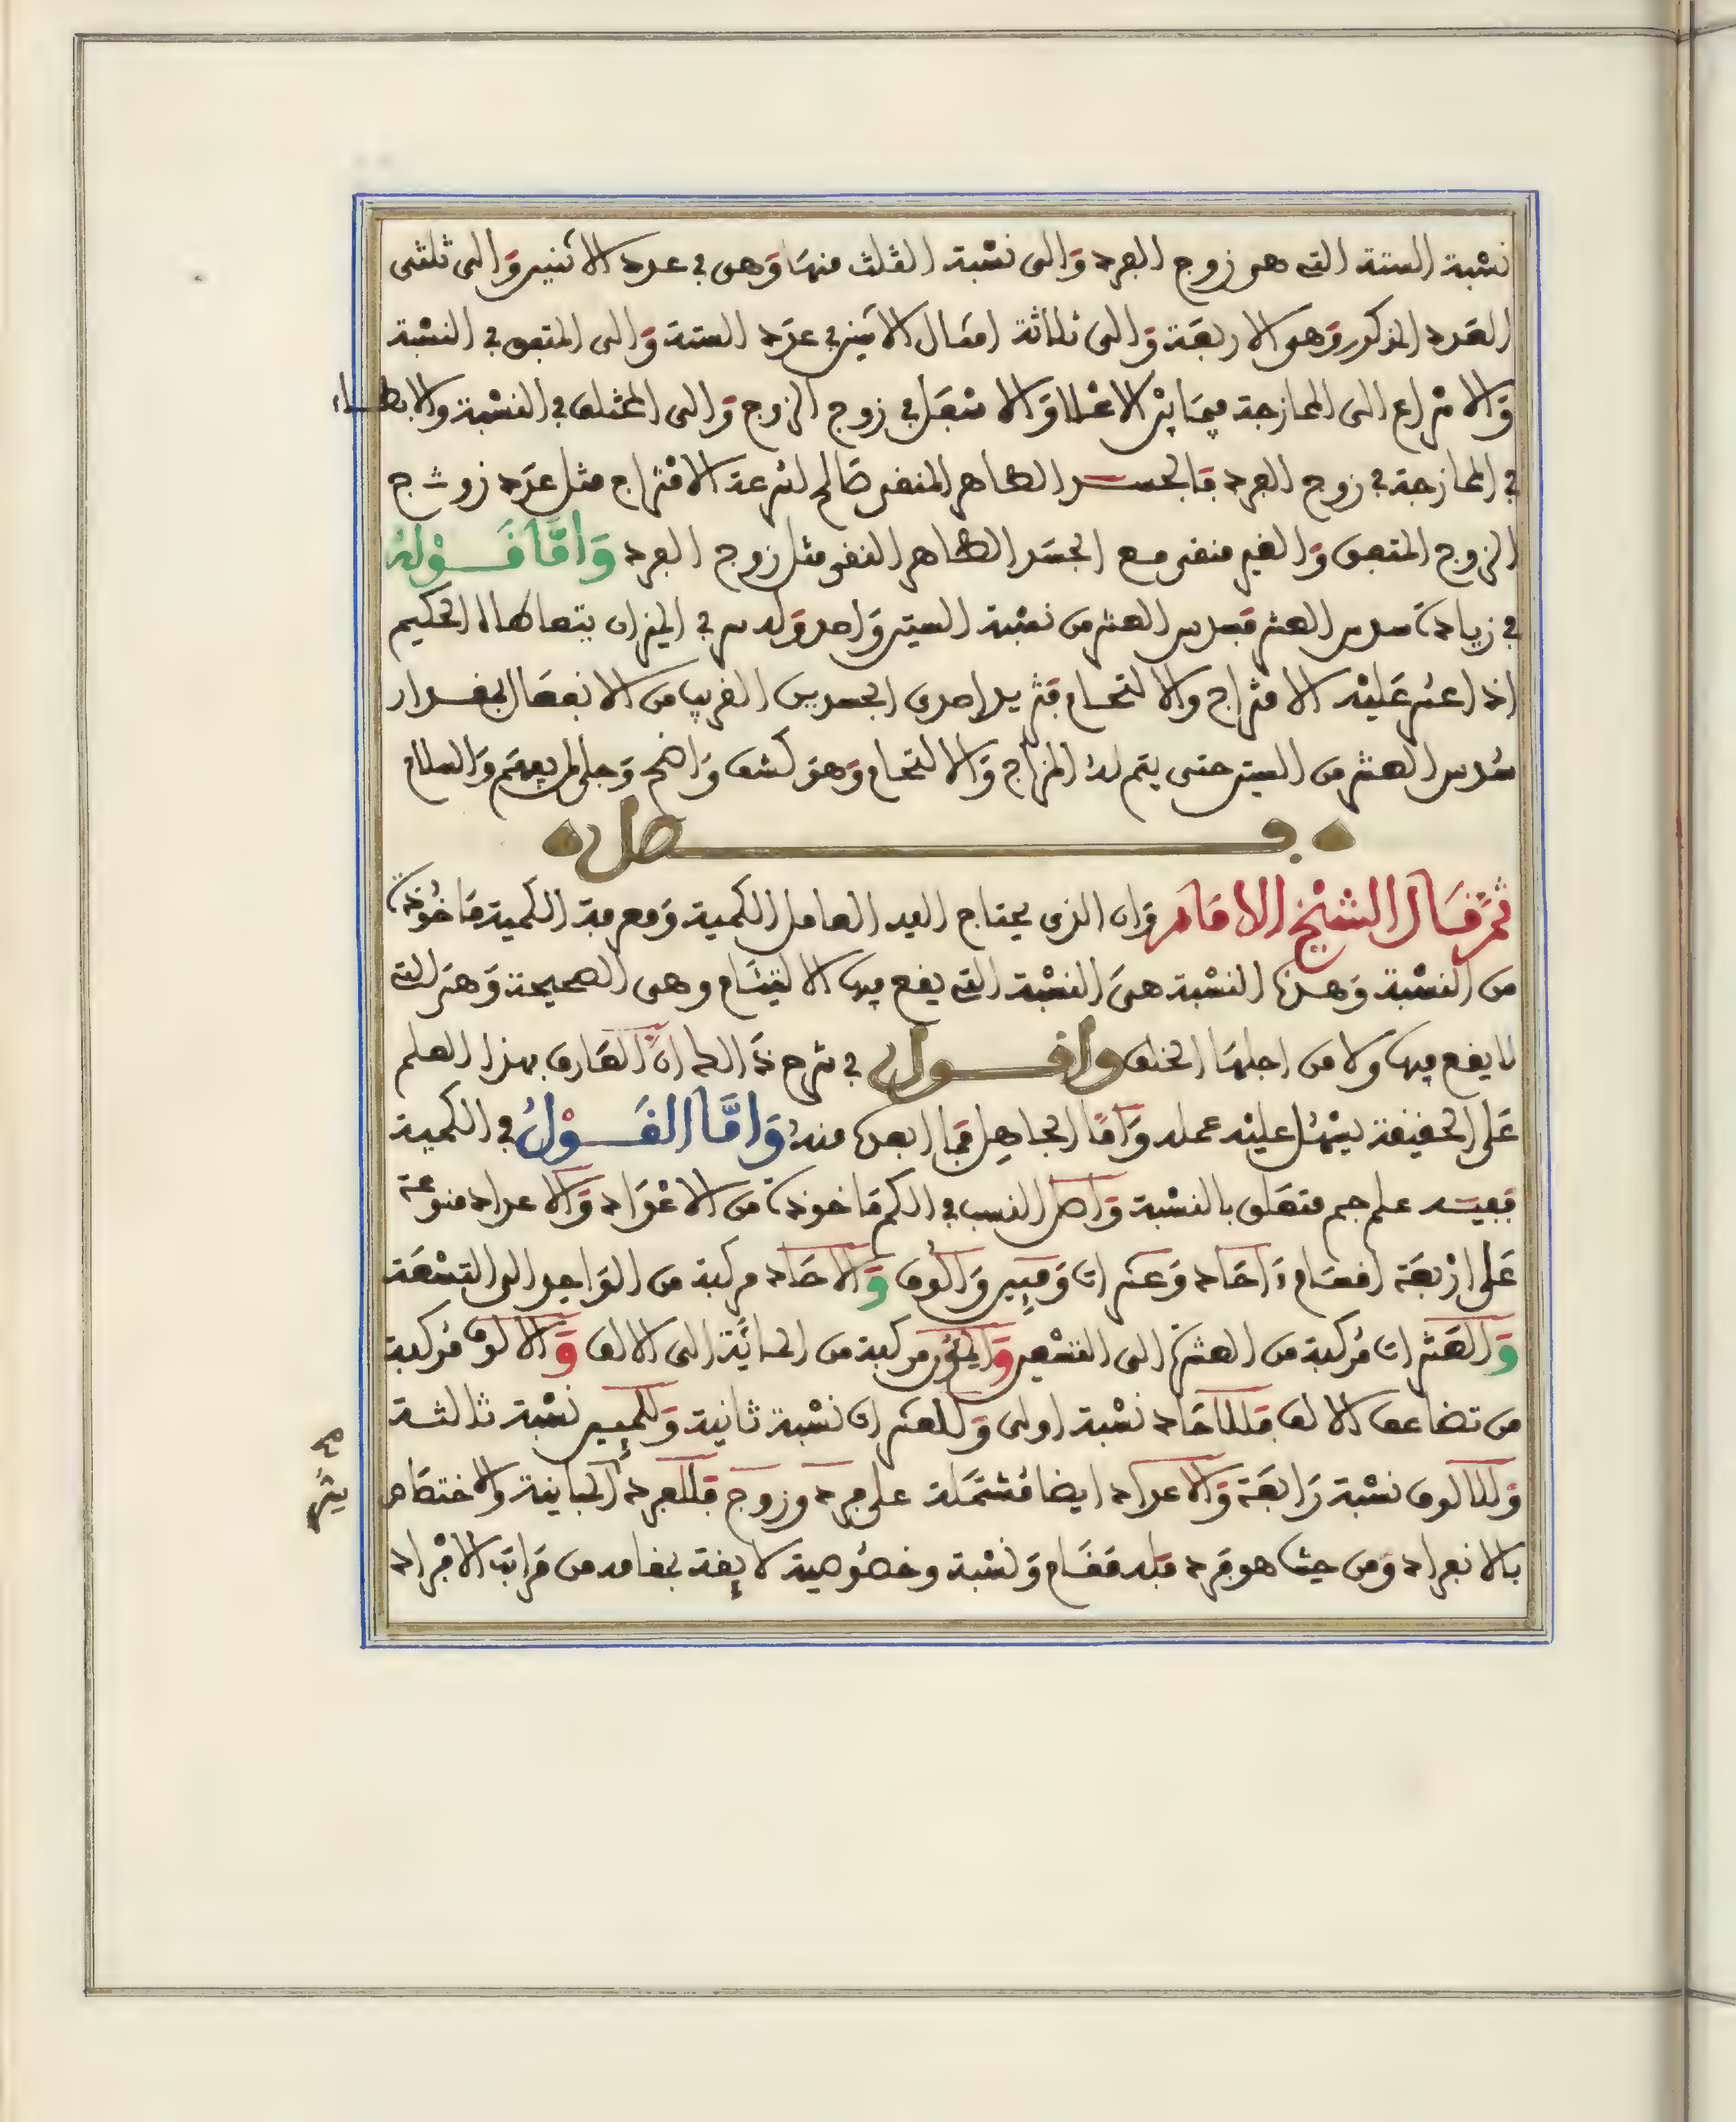 نسبة الستة التي هي زوج الفرد والى نسبة الثلث منها وهي في عدد الاثنين والى ثلثي
العدد المذكور وهو الاربعة والى ثلاثة امثال الاثنين في عدد الستة والى المتفق في النسبة
والامتزاج الى الممازجة فيما بين الاعلا والاسفل في زوج الزوج والى المختلف في النسبة والابطاء
في الممازجة في زوج الفرد فالجسد الطاهر المنقى صالح لسرعة الامتزاج مثل عدد زوج
الزوج المتفق والغير منقى مع الجسد الطاهر النقي مثل زوج الفرد واما قوله
في زيادة سدس العشر فسدس العشر من نسبة الستين واحد وله سر في الميزان يتعاطاه الحكيم
اذا اعسر عليه الامتزاج والالتحام فيزيد احدى الجسدين القريب من الانفعال بمقدار
سدس العشر من الستين حتى يتم له المزاج والالتحام وهو كشف واضح وجلي لمن يفهم والسلام
فصل
ثم قال الشيخ الامام وان الذي يحتاج اليه العامل الكمية ومعرفة الكمية ماخوذة
من النسبة وهذه النسبة هي النسبة التي يقع فيها الالتيام وهي الصحيحة وهي التي
لا يقع فيها ولا من اجلها الخلف واقول في شرح ذالك ان العارف بهذا العلم
على الحقيقة يسهل عليه عمله واما الجاهل فما ابعده منه واما القول في الكمية
ففيه علم جم متعلق بالنسبة واصل النسب في الكم ماخوذة من الاعداد والاعداد منوعة
على اربعة اقسام ءاحاد وعشرات ومييين والوف والاحاد مركبة من الواحد الى التسعة
والعشرات مركبة من العشرة الى التسعين والميون مركبة من المائة الى الالف والالوف مركبة
من تضاعف الالف فللاحاد نسبة اولى وللعشرات نسبة ثانية وللميين نسبة ثالثة
وللالوف نسبة رابعة والاعداد ايضا مشتملة على فرد وزوج فللفرد المباينة والاختصاص
بالانفراد ومن حيث هو فرد فله مقام ونسبة وخصوصية لايقة بمقامه من مراتب الافراد